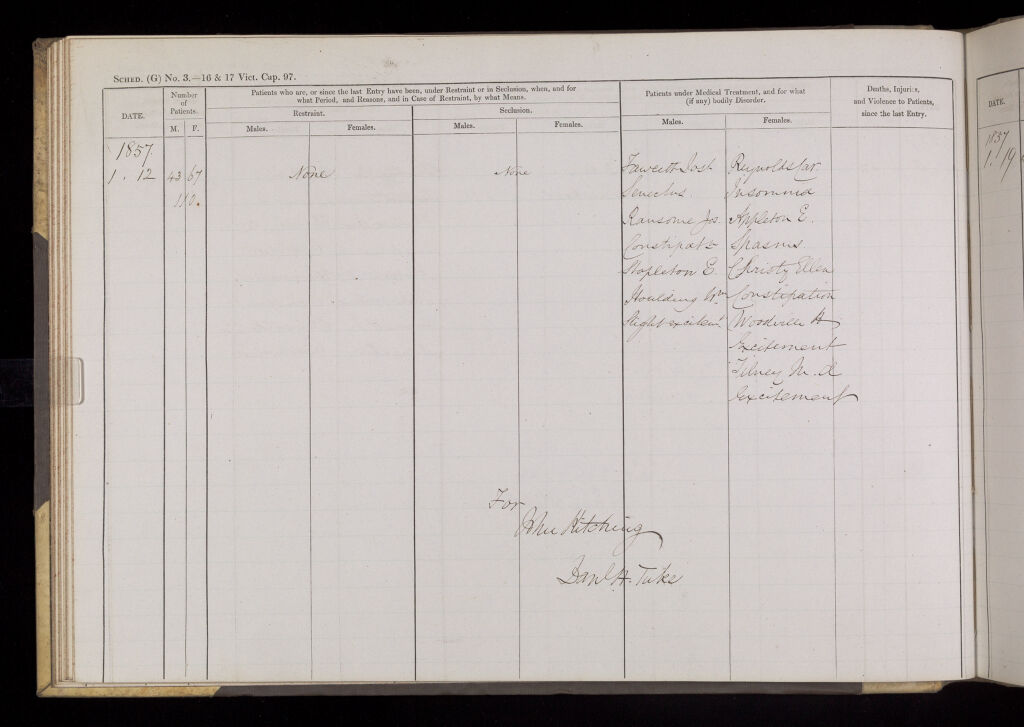 SCHED. (G) No. 3.—16 & 17 Vict. Cap. 97.
DATE.
Number of Patients.
M. F.
Patients who are, or since the last Entry have been, under Restraint or in Seclusion, when, and for
what Period, and Reasons, and in Case of Restraint, by what Means.
Restraint.
Males. Females.
Seclusion.
Males. Females.
Patients under Medical Treatment, and for what
(if any) bodily Disorder.
Males. Females.
Deaths, Injuries,
and Violence to Patients,
since the last Entry.
1857.
1 . 12 43 67 None None Fawcett Josh Reynolds Car.
110. Senectus. Insomnia
Ransome Js. Appleton E.
Constipatn Spasms
Stapleton E. Christy Ellen
Houlding Wm Constipation
Slight excitemt Woodville H
Excitement
Tilney M. A
Excitement
For
John Kitching
Danl H. Tuke
DATE.
1857
1. 19